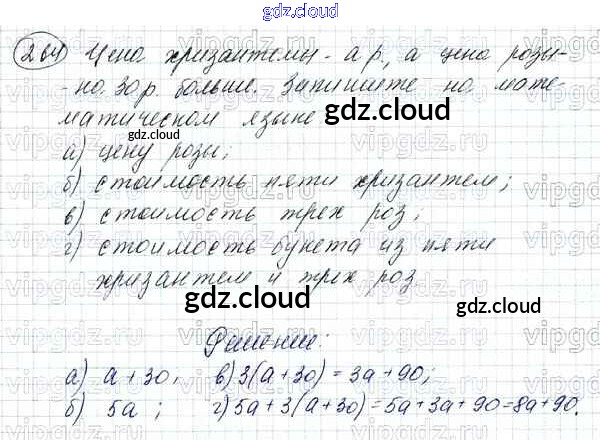 gdz.cloud
264 Цена хризантемы - а р, а цена розы-
- на 30 р. больше. Запишите на мате-
матическом языке
gdz.cloud
gdz.cloud
а) цену розы;
б) стоимость пяти хризантем;
в) стоимость трех роз;
г) стоимость букета из пяти
gdz.cloud
хризантем и трех роз
gdz.cloud
gdz.cloud
Решение:
а) а + 30, в) 3(а + 30) = 3а + 90;
б) 5а ; г) 5а + 3(а + 30) = 5а + 3а + 90 = 8а + 90.
gdz.cloud